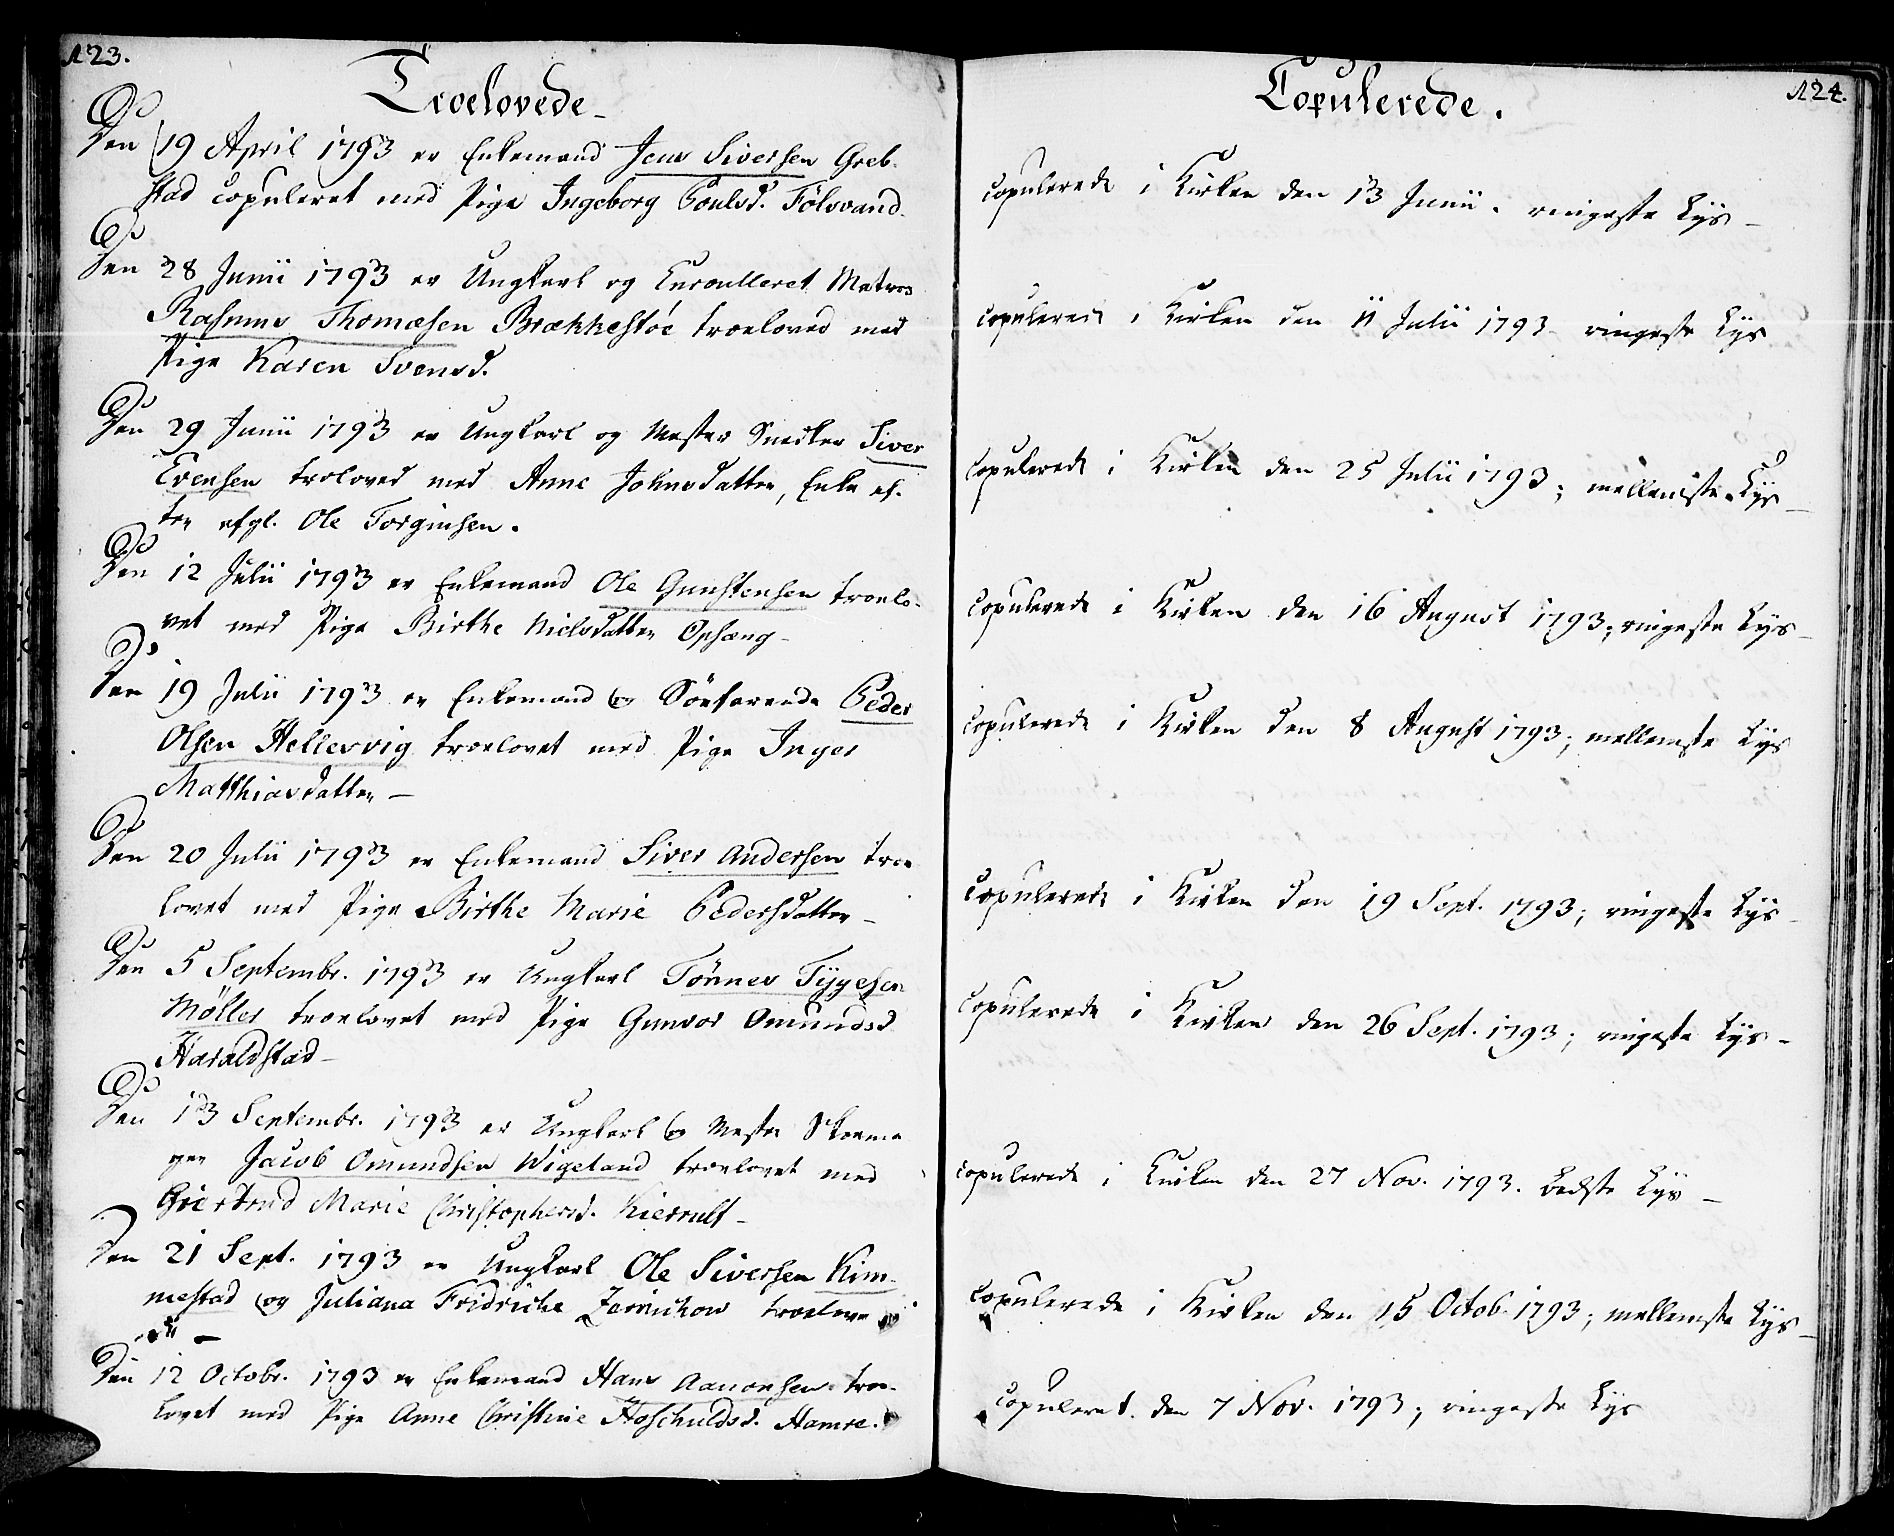 123.
Troelovede
Den 19 April 1793 er Enkemand Jens Siversen Greb-
stad copuleret med Pige Ingeborg Poulsd. Fölsvand.
Den 28 Junii 1793 er Ungkarl og Enroulleret Matros
Rasmus Thomæsen Brækkestöe troeloved med
Pige Karen Svensd.
Den 29 Junii 1793 er Ungkarl og Mester Snedker Siver
Evensen troloved med Anne Johnsdatter, Enke ef-
ter afgl. Ole Torginsen.
Den 12 Julii 1793 er Enkemand Ole Gunstensen troelo-
vet med Pige Birthe Nielsdatter Opsæng
Den 19 Julii 1793 er Enkemand og Söefarende Peder
Olsen Hellesvig troelovet med Pige Inger
Matthiasdatter
Den 20 Julii 1793 er Enkemand Siver Andersen troe
lovet med Pige Birthe Marie Pedersdatter
Den 5 Septembr. 1793 er Ungkarl Tönnes Tygesen
Möller troelovet med Pige Gunvor Omundsd
Haraldstad
Den 13 Septembr. 1793 er Ungkarl og Mester Skoema
ger Jacob Omundsen Wigeland troelovet med
Giertrud Marie Christophersd. Kierrult
Den 21 Sept. 1793 er Ungkarl Ole Siversen Kim-
mestad og Juliana Fridriche Zarnichow troelove
Den 12 Octobr. 1793 er Enkemand Hans Aanonsen troe-
lovet med Pige Anne Christine Hoschuldsd. Hamre.
124.
Copulerede.
copulerede i Kirken den 13 Junii. ringeste Lys
copulerede i Kirken den 11 Julii 1793 ringeste Lys
copulerede i Kirken den 25 Julii 1793; mellemste Lys
copulerede i Kirken den 16 August 1793; ringeste Lys
copulerede i Kirken den 8 August 1793; mellemste Lys
copulerede i Kirken den 19 Sept. 1793; ringeste Lys
copulerede i Kirken den 26 Sept. 1793; ringeste Lys
copulerede i Kirken den 27 Nov. 1793. bedste Lys
copulerede i Kirken den 15 Octob. 1793; mellemste Lys
copuleret. den 7 Nov. 1793; ringeste Lys